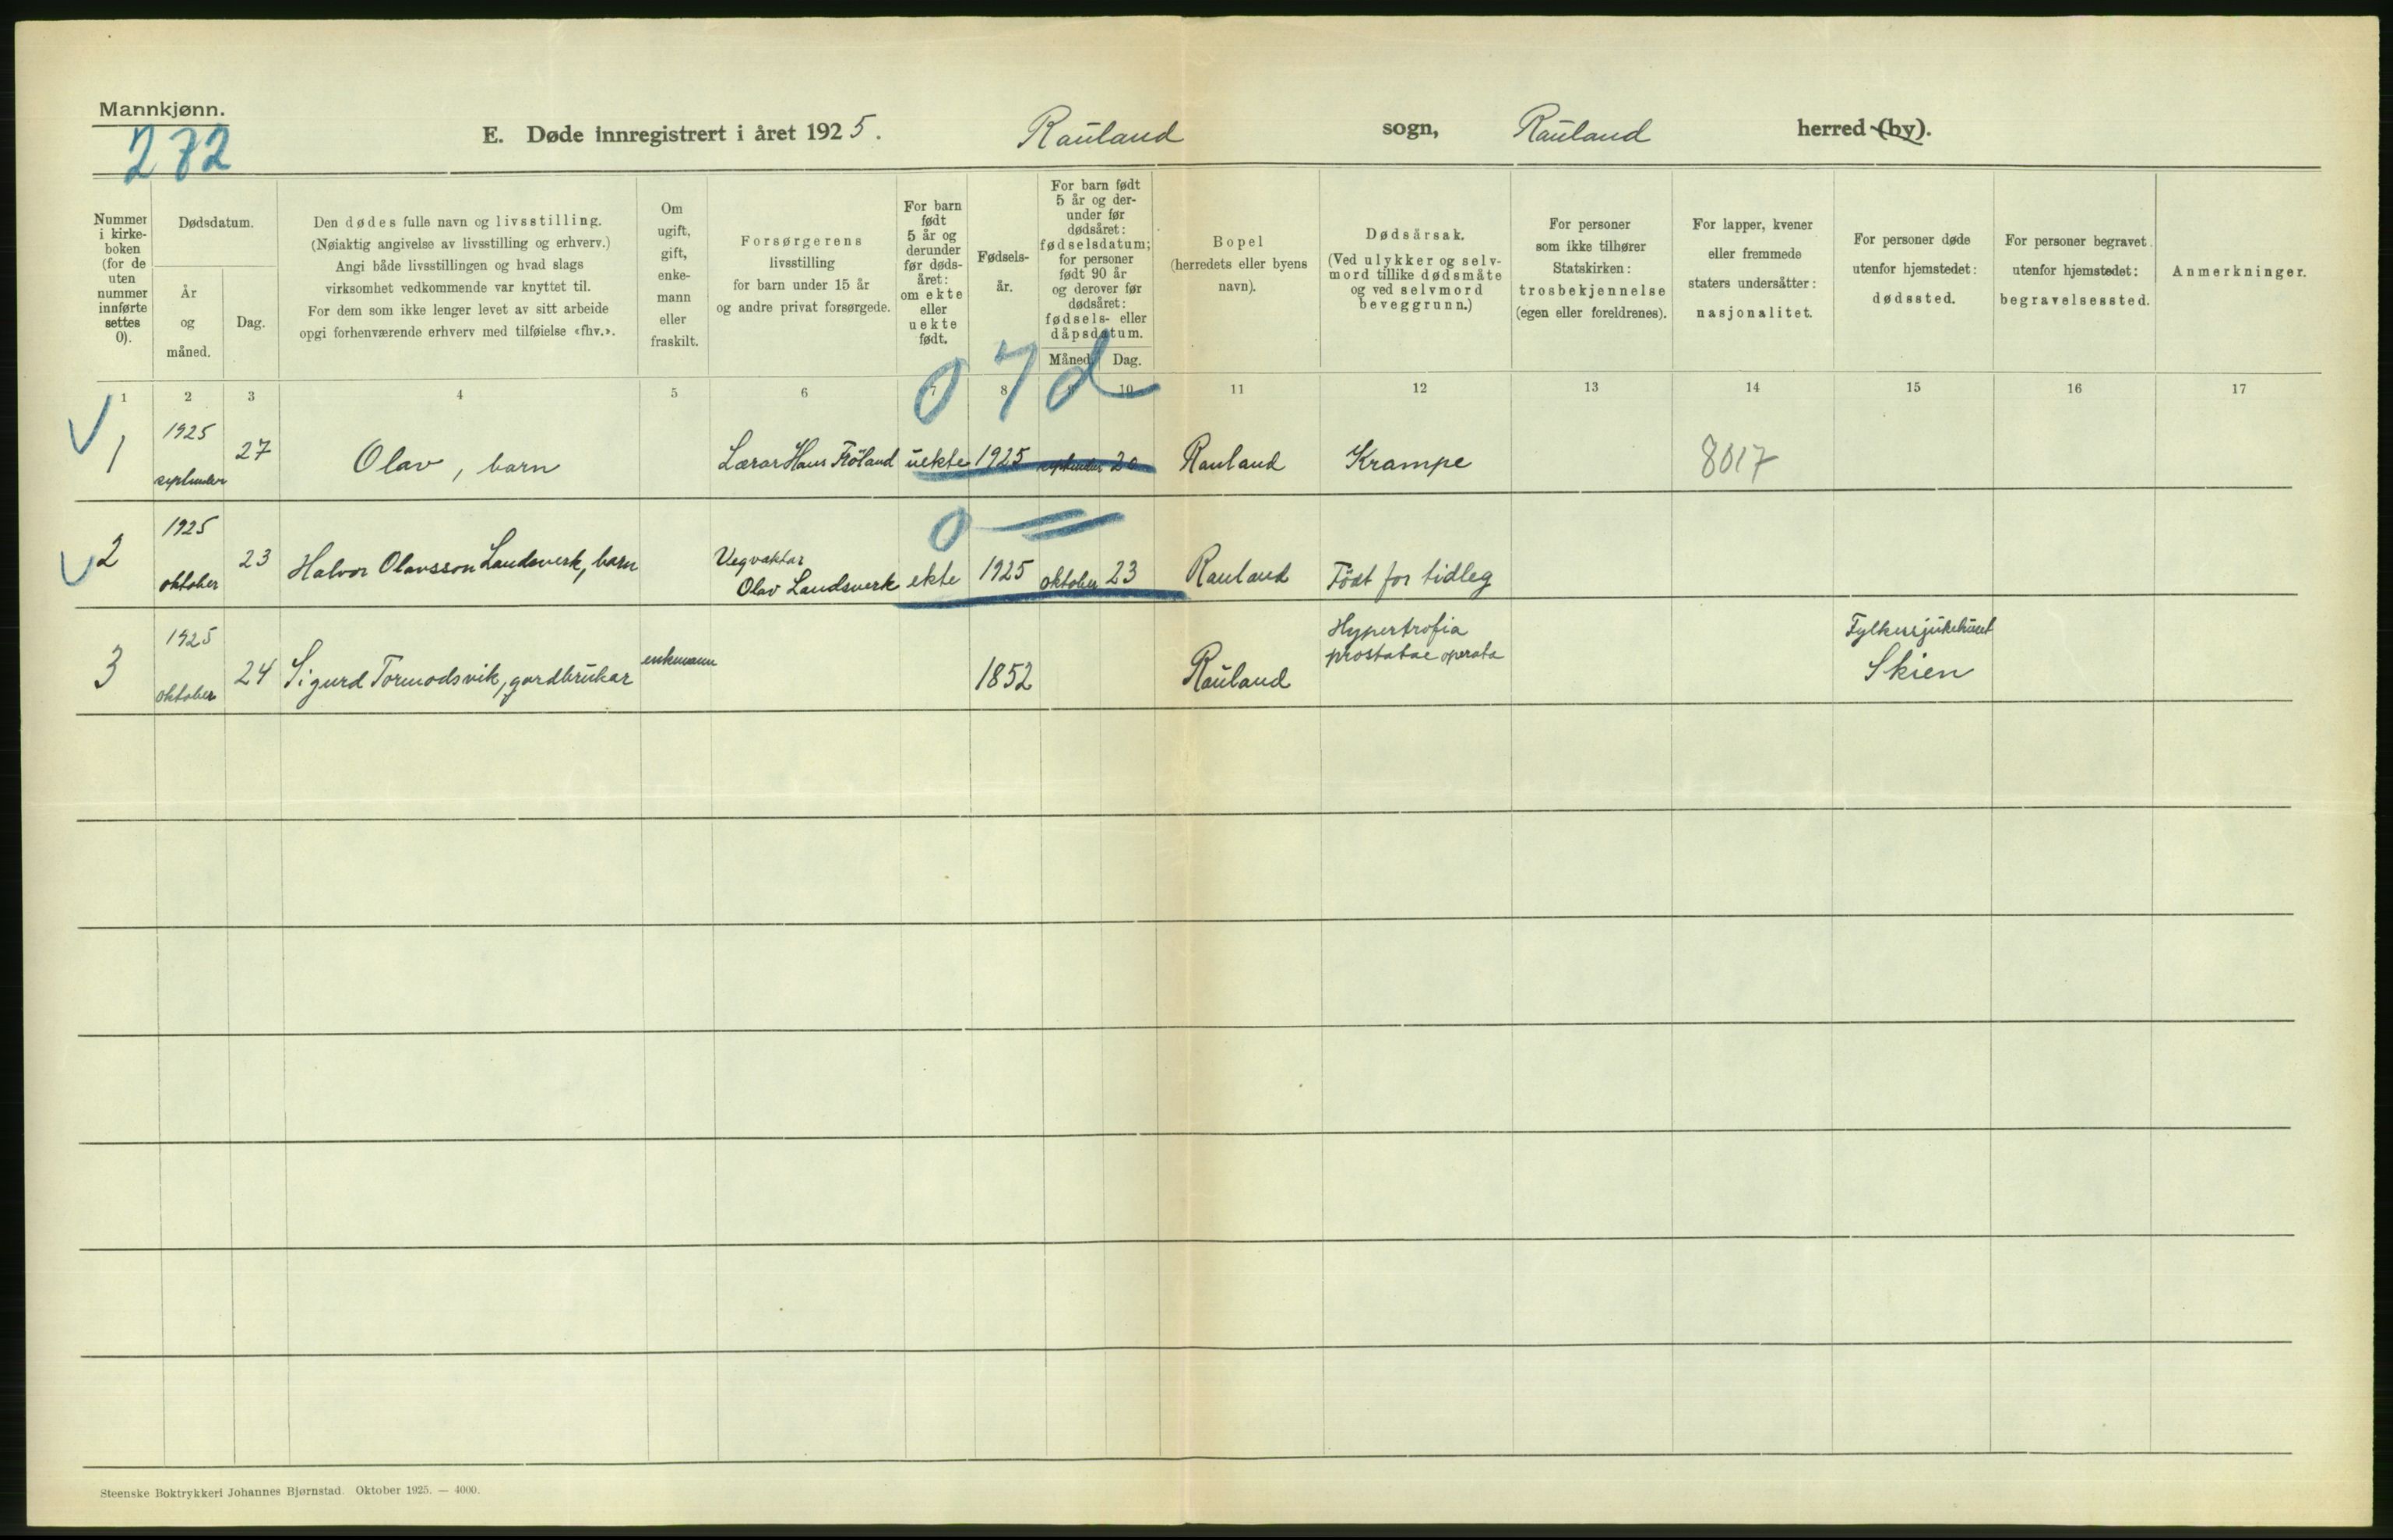 Mannkjønn.
272
E. Døde innregistrert i året 1925. Rauland sogn, Rauland herred (by).
Nummer i kirke-boken (for de uten nummer innførte settes 0).
Dødsdatum.
År og måned.
Dag.
Den dødes fulle navn og livsstilling.
(Nøiaktig angivelse av livsstilling og erhverv.)
Angi både livsstillingen og hvad slags
virksomhet vedkommende var knyttet til.
For dem som ikke lenger levet av sitt arbeide
opgi forhenværende erhverv med tilføielse «fhv.».
Om
ugift,
gift,
enke-
mann
eller
fraskilt.
Forsørgerens
livsstilling
for barn under 15 år
og andre privat forsørgede.
For barn
født
5 år og
derunder
før døds-
året:
om ekte
eller
uekte
født.
Fødsels-
år.
For barn født
5 år og der-
under før
dødsåret:
fødselsdatum;
for personer
født 90 år
og derover før
dødsåret:
fødsels- eller
dåpsdatum.
Måned. Dag.
Bopel
(herredets eller byens
navn).
Dødsårsak.
(Ved ulykker og selv-
mord tillike dødsmåte
og ved selvmord
beveggrunn.)
For personer
som ikke tilhører
Statskirken:
trosbekjennelse
(egen eller foreldrenes).
For lapper, kvener
eller fremmede
staters undersåtter:
nasjonalitet.
For personer døde
utenfor hjemstedet:
dødssted.
For personer begravet
utenfor hjemstedet:
begravelsessted.
Anmerkninger.
1 2 3 4 5 6 7 8 9 10 11 12 13 14 15 16 17
0 7 d
1 1925 september 27 Olav, barn Lærar Hans Fröland uekte 1925 september 20 Rauland Krampe 8017
0
2 1925 oktober 23 Halvor Olavsson Landsverk, barn Vegvaktar Olav Landsverk ekte 1925 oktober 23 Rauland Födt for tidleg
3 1925 oktober 24 Sigurd Tormodsvik, gardbrukar enkmann 1852 Rauland Hypertrofia prostatae operata Fylkessjukehuset Skien
Steenske Boktrykkeri Johannes Bjørnstad. Oktober 1925. — 4000.